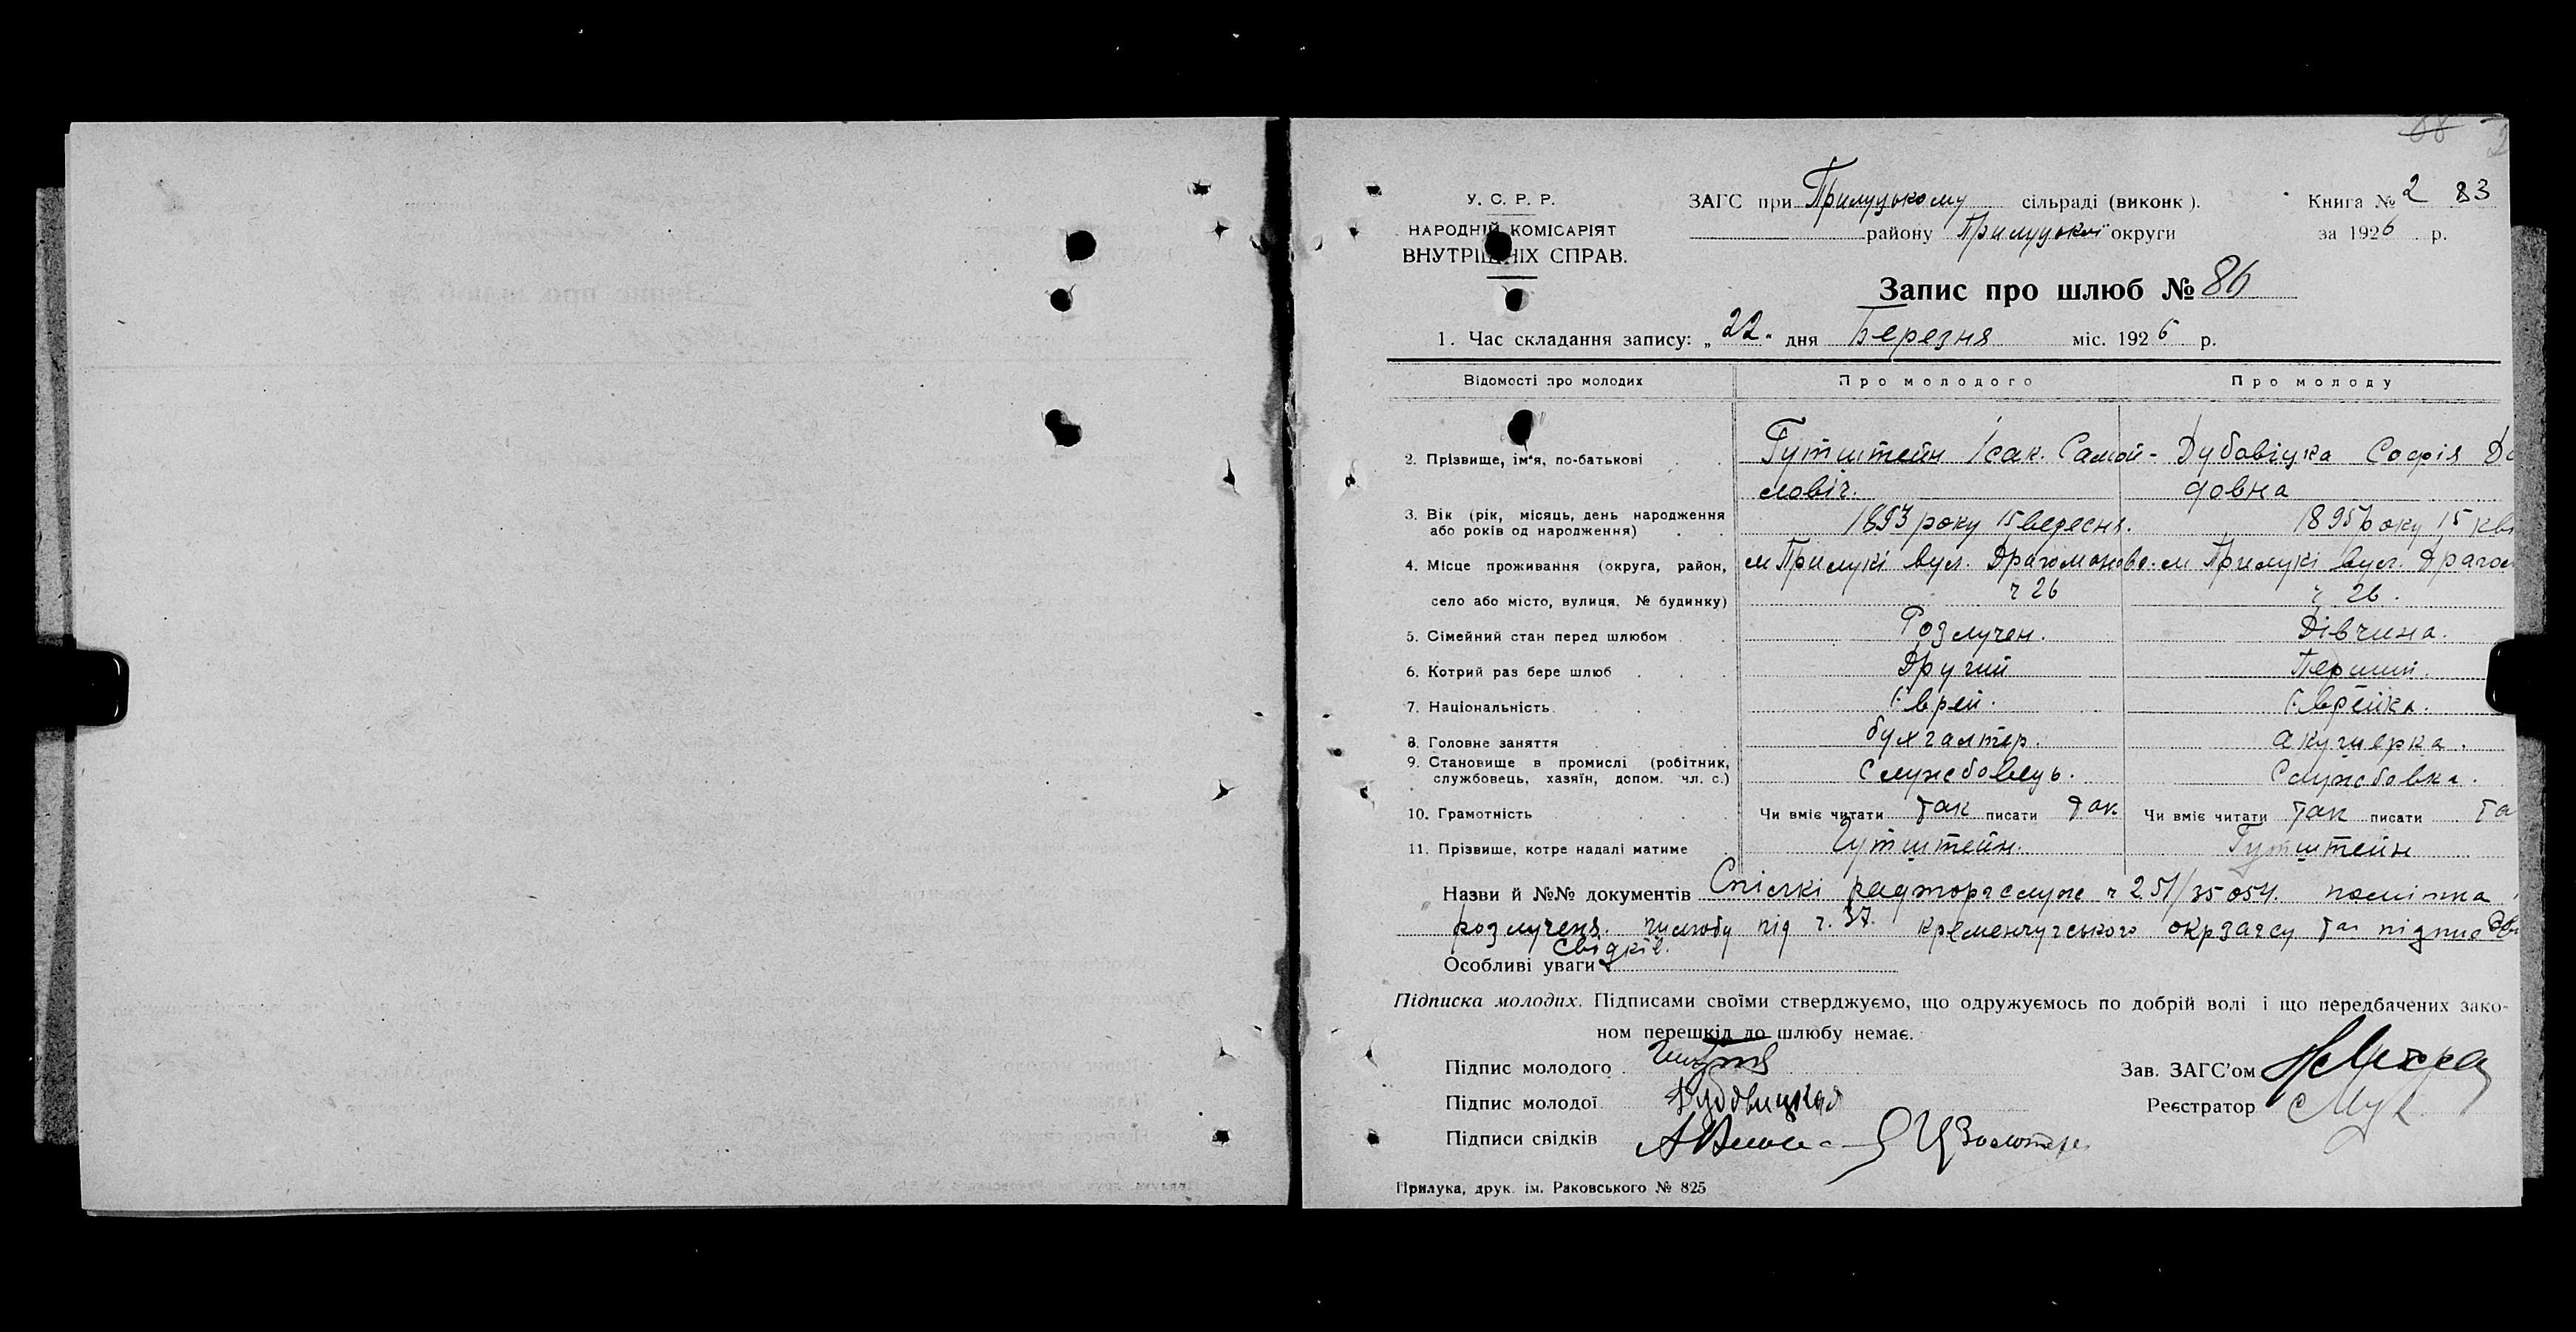 88
У. С. Р. Р.
НАРОДНІЙ КОМІСАРІЯТ
ВНУТРІШНІХ СПРАВ.
ЗАГС при Прилуцькому сільраді (виконк).
району Прилуцької округи
Книга № 2 83
за 1926 р.
Запис про шлюб № 86
1. Час складання запису: „22" дня Березня міс. 1926 р.
Відомості про молодих Про молодого Про молоду
2. Прізвище, ім'я, по-батькові Гутштейн Ісак. Самой- Дубовіцка Софія Да
ловіч. довна
3. Вік (рік, місяць, день народження 1893 року 15 вересня. 1895 року 15 кві
або років од народження)
4. Місце проживання (округа, район, м Прилукі вул. Драгоманова. м Прилукі вул. Драгом
село або місто, вулиця, № будинку) ч 26 ч 26.
5. Сімейний стан перед шлюбом Розлучен. Дівчина.
6. Котрий раз бере шлюб Другий Перший.
7. Національність Єврей. Єврейка.
8. Головне заняття бухгалтер. акушерка.
9. Становище в промислі (робітник, Службовець. Службовка.
службовець, хазяїн, допом. чл. с.)
10. Грамотність Чи вміє читати так писати так Чи вміє читати так писати та
11. Прізвище, котре надалі матиме Гутштейн. Гутштейн
Назви й №№ документів Спілкі радторгслуж ч 251/35054. помітка
розлученя. шлюбу під ч. 37. кременчугського окрзагсу та підпис дв
свідків.
Особливі уваги
Підписка молодих. Підписами своїми стверджуємо, що одружуємось по добрій волі і що передбачених зако-
ном перешкід до шлюбу немає.
Підпис молодого
Підпис молодої Дубовицкая
Підписи свідків
Зав. ЗАГС'ом
Реєстратор
Прилука, друк. ім. Раковського № 825